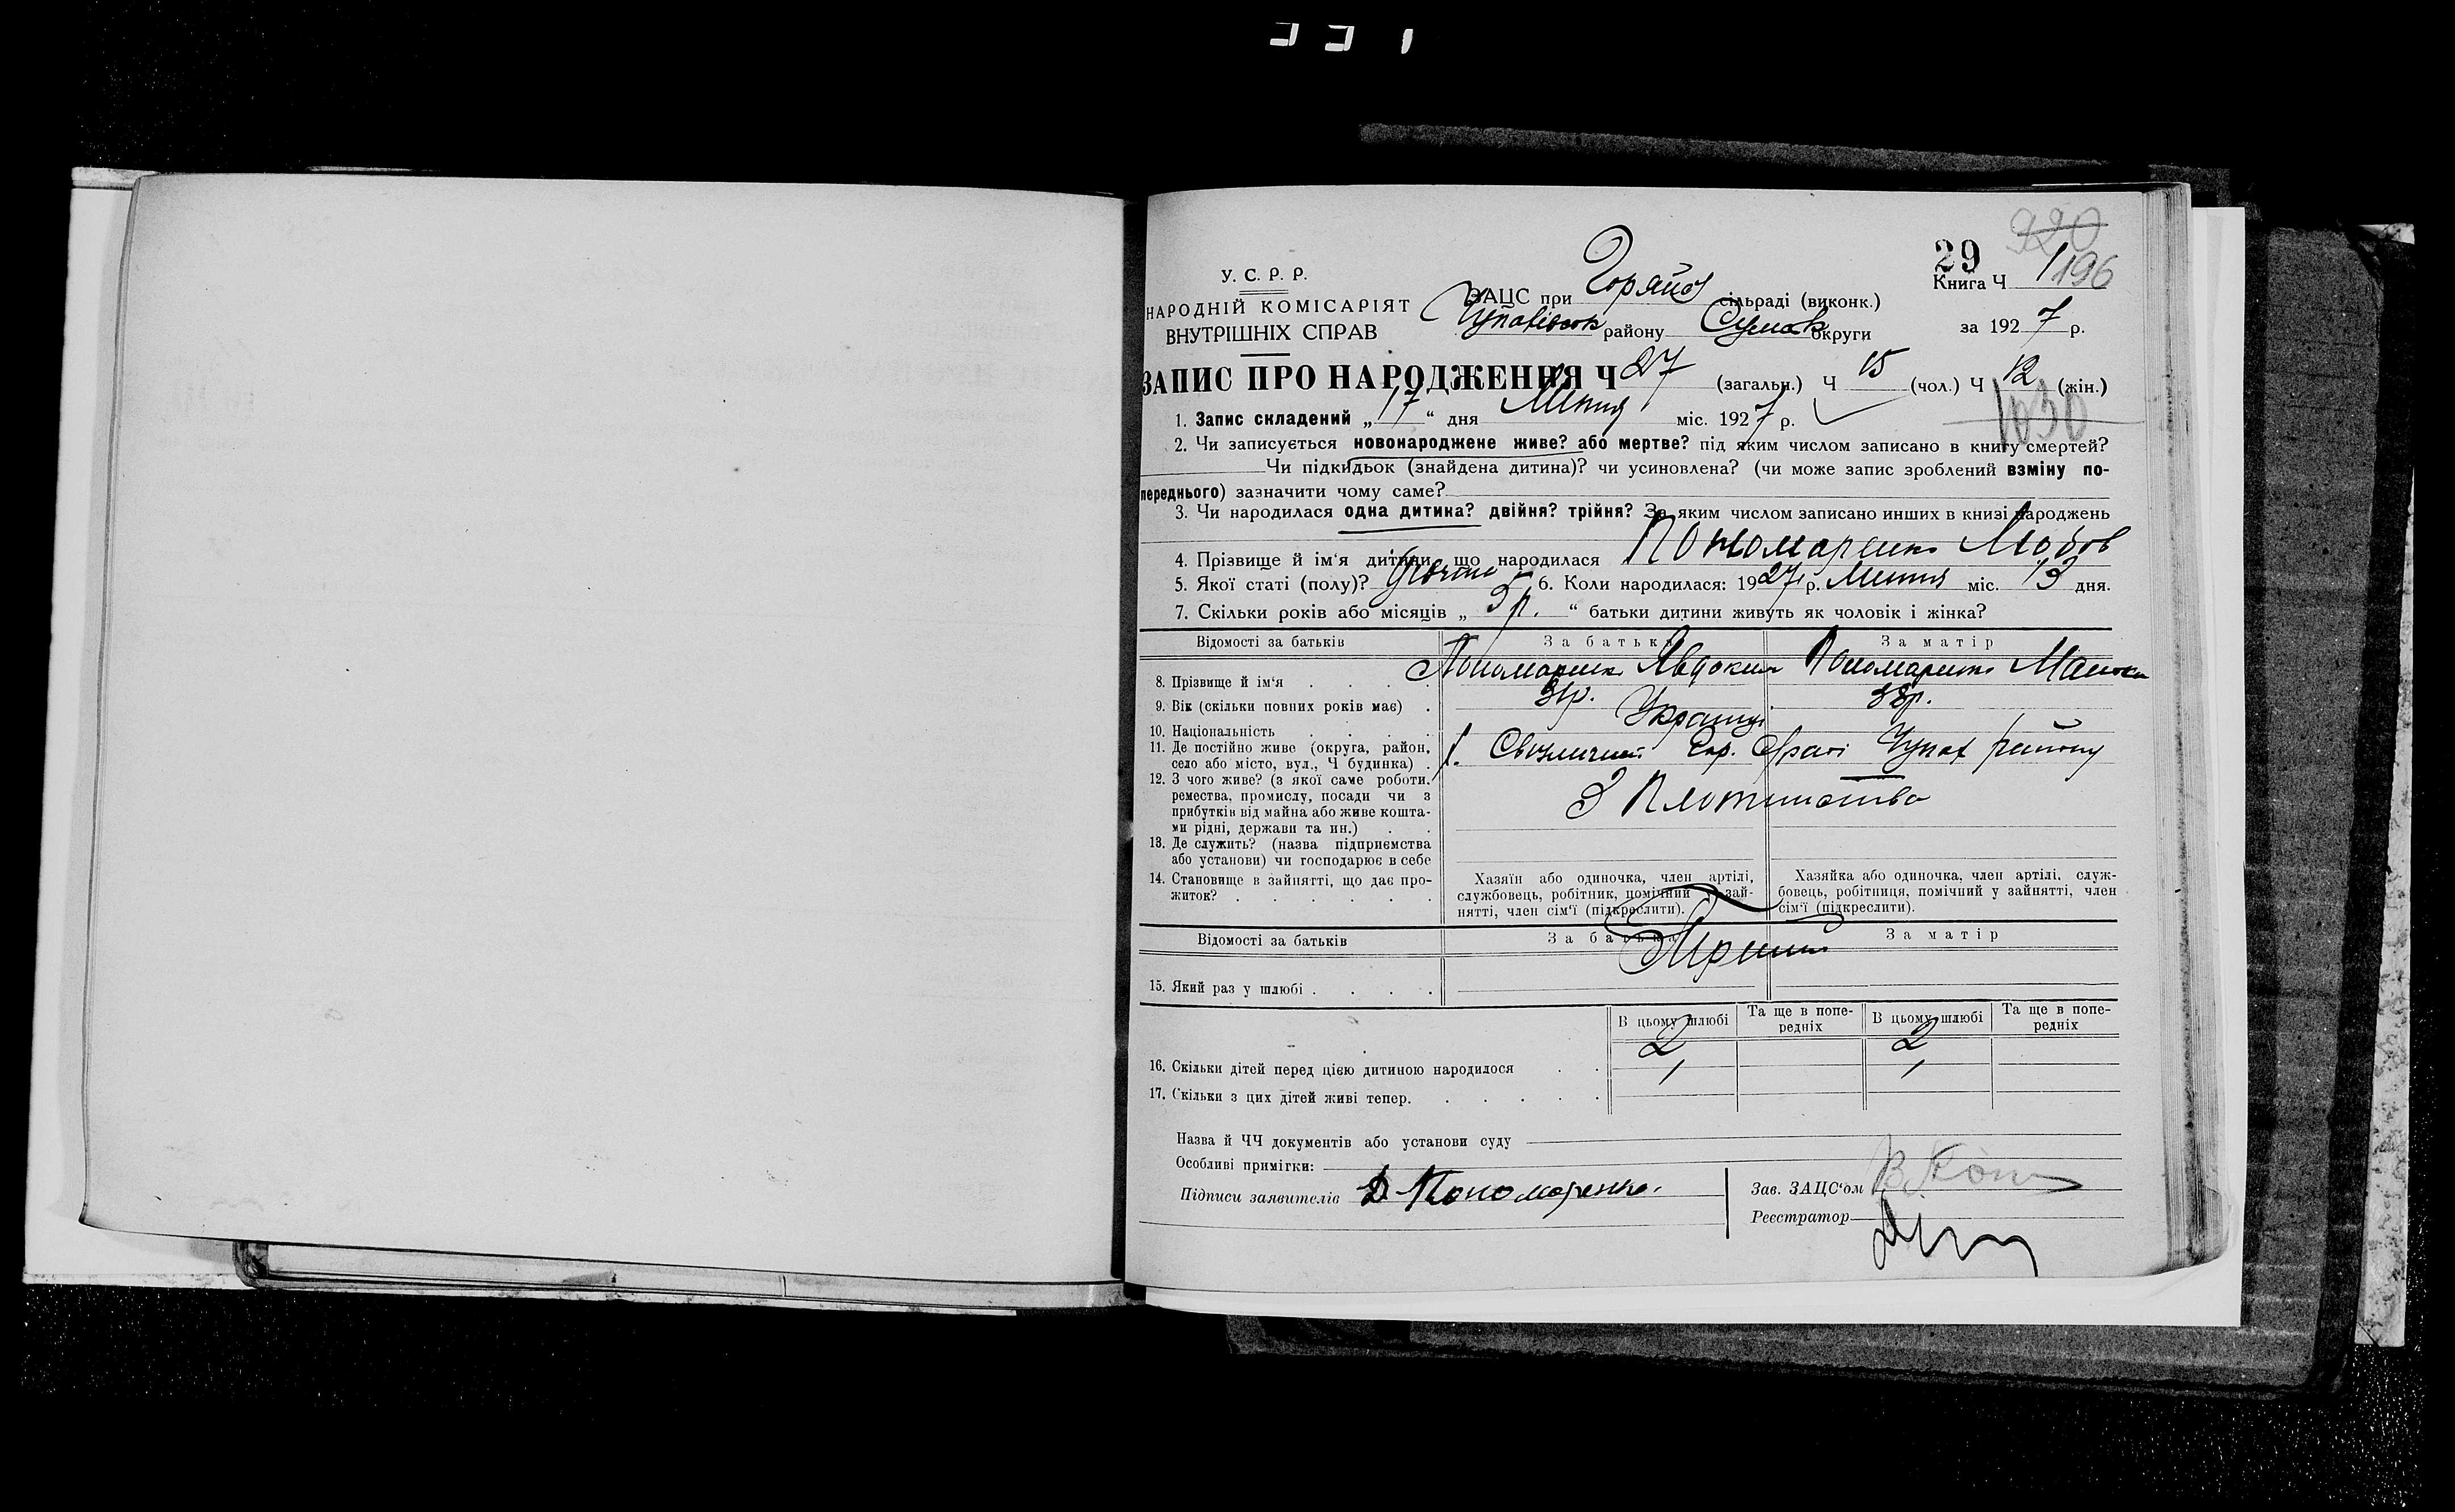 331
920
29
Книга Ч 1 196
У. С. Р. Р.
НАРОДНІЙ КОМІСАРІЯТ
ВНУТРІШНІХ СПРАВ
ЗАЦС при сільраді (виконк.)
району Сумськ округи
за 1927 р.
ЗАПИС ПРО НАРОДЖЕННЯ Ч 27 (загальн.) Ч 15 (чол.) Ч 12 (жін.)
1030
1. Запис складений „ 17 “ дня Липня міс. 1927 р.
2. Чи записується новонароджене живе? або мертве? під яким числом записано в книгу смертей?
Чи підкидьок (знайдена дитина)? чи усиновлена? (чи може запис зроблений взміну по-
переднього) зазначити чому саме?
3. Чи народилася одна дитина? двійня? трійня? За яким числом записано инших в книзі народжень
4. Прізвище й ім'я дитини, що народилася Пономаренко Любов
5. Якої статі (полу)? 6. Коли народилася: 1927 р. Липня міс. 13 дня.
7. Скільки років або місяців „ 5 р. “ батьки дитини живуть як чоловік і жінка?
Відомості за батьків За батька За матір
8. Прізвище й ім'я . . . . Пономаренко Явдоким Пономаренко
9. Вік (скільки повних років має) . р. р.
10. Національність . . . . Українці
11. Де постійно живе (округа, район,
село або місто, вул., Ч будинка) . району
12. З чого живе? (з якої саме роботи,
ремества, промислу, посади чи з
прибутків від майна або живе кошта-
ми рідні, держави та ин.) . .
З Плотництва
13. Де служить? (назва підприємства
або установи) чи господарює в себе
14. Становище в зайнятті, що дає про-
житок? . . . . . .
Хазяїн або одиночка, член артілі,
службовець, робітник, помічний у зай-
нятті, член сім'ї (підкреслити).
Хазяйка або одиночка, член артілі, служ-
бовець, робітниця, помічний у зайнятті, член
сім'ї (підкреслити).
Відомості за батьків За батька За матір
15. Який раз у шлюбі . . . .
В цьому шлюбі Та ще в попе-
редніх В цьому шлюбі Та ще в попе-
редніх
16. Скільки дітей перед цією дитиною народилося . . 2 2
17. Скільки з цих дітей живі тепер. . . . . . 1 1
Назва й ЧЧ документів або установи суду
Особливі примітки:
Підписи заявителів Д Пономаренко.
Зав. ЗАЦС'ом
Реєстратор